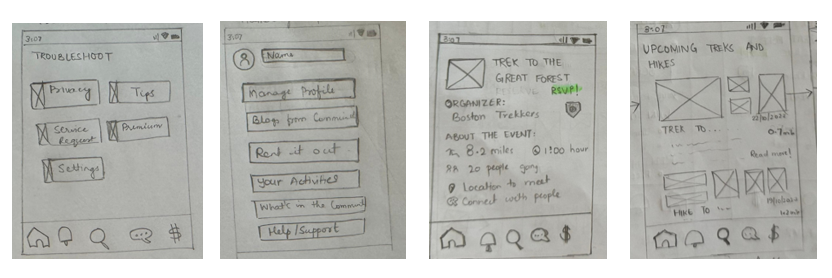 3:07
TROUBLESHOOT
Privacy
Tips
Service
Request
Premium
Settings
$
3:07
Name
Manage Profile
Blogs from Communit
Rent it out
Your Activities
What's in the Communi
Help/Support
3:07
TREK TO THE
GREAT FOREST
RSVP!
ORGANIZER:
Boston Trekkers
ABOUT THE EVENT:
8.2 miles 1:00 hour
20 people going
Location to meet
Connect with people
$
3:07
UPCOMING TREKS AND
HIKES
TREK TO...
0.7mi
Read more!
HIKE TO ...
$